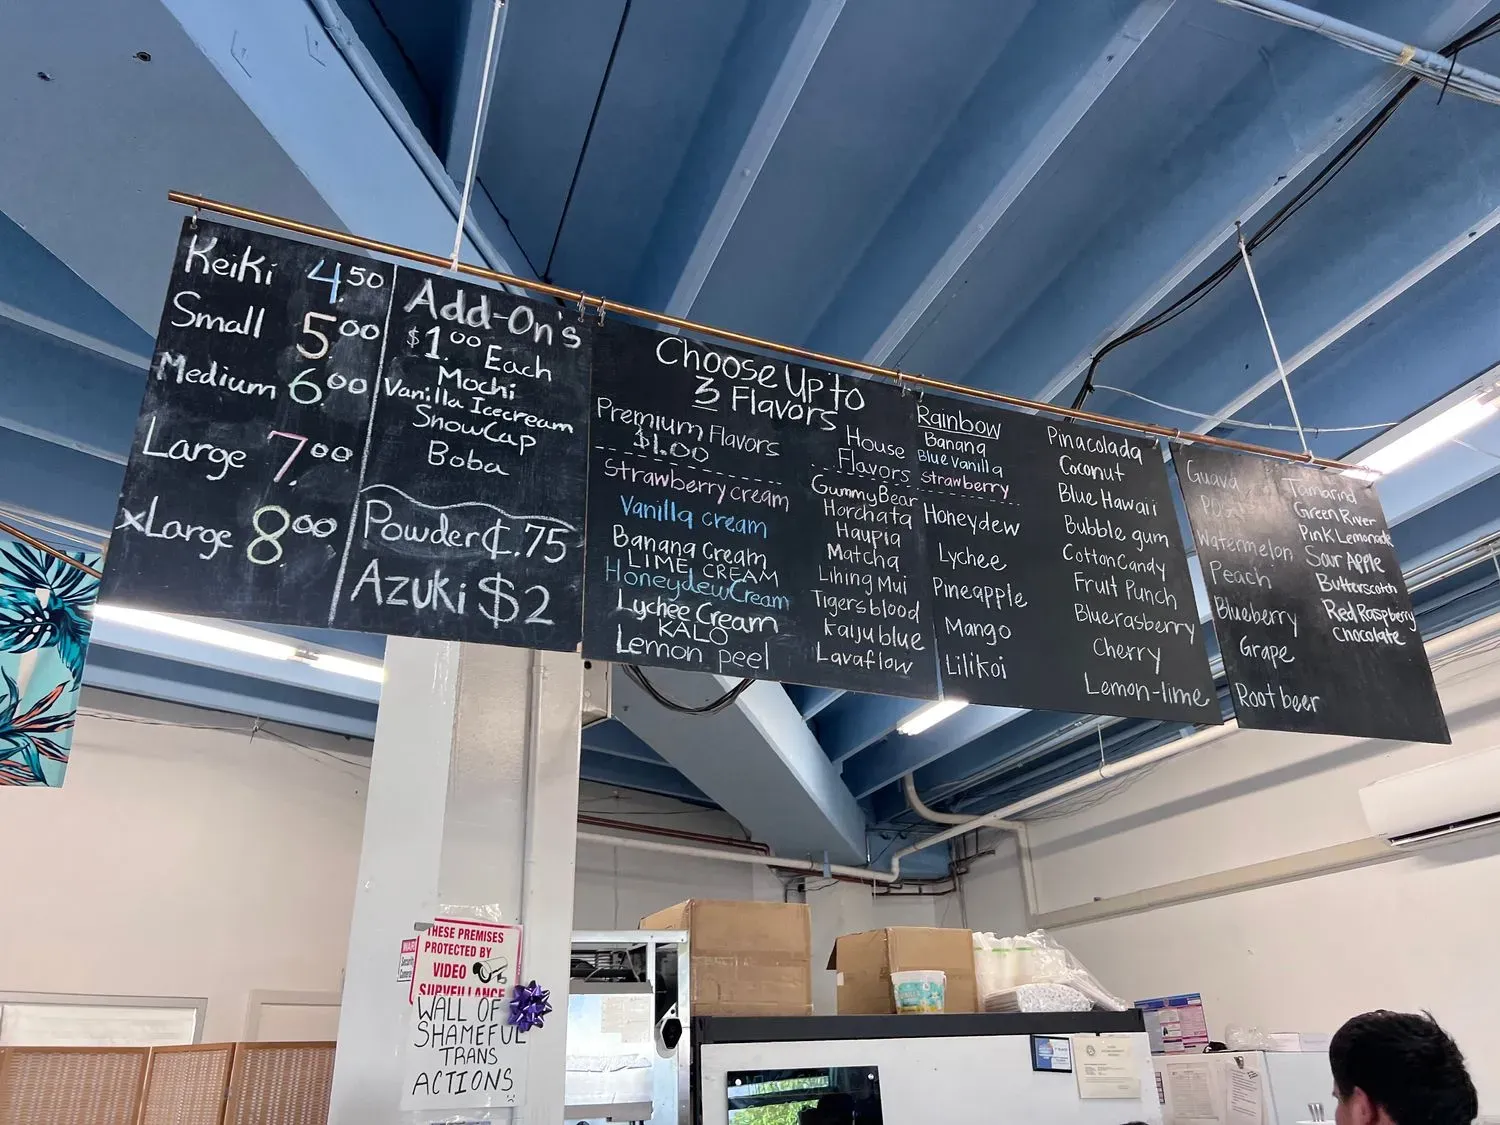 KeiKi 4.50
Small 5.00
Medium 6.00
Large 7.00
xLarge 8.00
Add-On's
$1.00 Each
Mochi
Vanilla Icecream
SnowCap
Boba
Powder ¢.75
Azuki $2
Choose Up to
3 Flavors
Premium Flavors
$1.00
Strawberry cream
Vanilla cream
Banana Cream
LIME CREAM
Honeydew Cream
Lychee Cream
KALO
Lemon peel
House
Flavors
Gummy Bear
Horchata
Haupia
Matcha
Lihing Mui
Tigersblood
Kaiju blue
Lavaflow
Rainbow
Banana
Blue Vanilla
Strawberry
Honeydew
Lychee
Pineapple
Mango
Lilikoi
Pinacolada
Coconut
Blue Hawaii
Bubble gum
Cotton Candy
Fruit Punch
Bluerasberry
Cherry
Lemon-lime
Guava
POG
Watermelon
Peach
Blueberry
Grape
Root beer
Tamarind
Green River
Pink Lemonade
Sour Apple
Butterscotch
Red Raspberry
Chocolate
THESE PREMISES
PROTECTED BY
VIDEO
SURVEILLANCE
WALL OF
SHAMEFUL
TRANS
ACTIONS